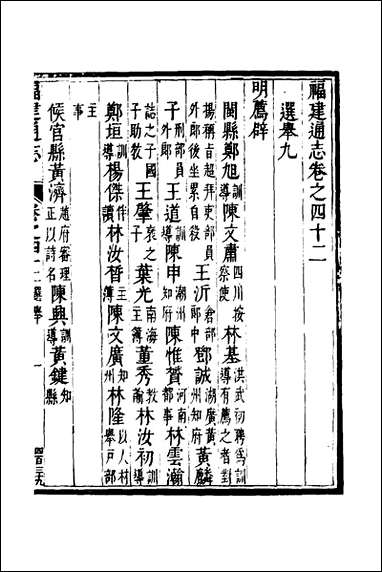 福建通志卷之四十二
選舉九
明薦辟
閩縣鄭旭訓導陳文肅四川按察使林基洪武初聘為訓導有薦之者對
揚稱旨超拜吏部員外郎後坐累自役王沂倉部郎中鄧誠湖廣黃州知府黃麟
子刑部員外郎王道訓導陳申湖州知府陳惟賢河南都事林雲瀚
誌之子國子助教王肇之子葉光南海主簿董秀教諭林汝初訓導
鄭垣訓導楊傑伴讀林汝晳主簿陳文廣知州林隆以人材舉戶部
主事
候官縣黃濟趙府審理正以詩名陳興訓導黃鍵知縣
福建通志 卷之四十二選舉 一